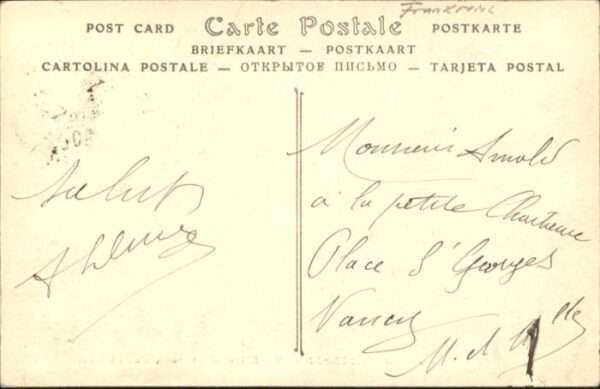 Frankreich
POST CARD Carte Postale POSTKARTE
BRIEFKAART — POSTKAART
CARTOLINA POSTALE — ОТКРЫТОЕ ПИСЬМО — TARJETA POSTAL
Salut
Monsieur Arnold
à la petite Chartreuse
Place St Georges
Nancy
M. et Mlle